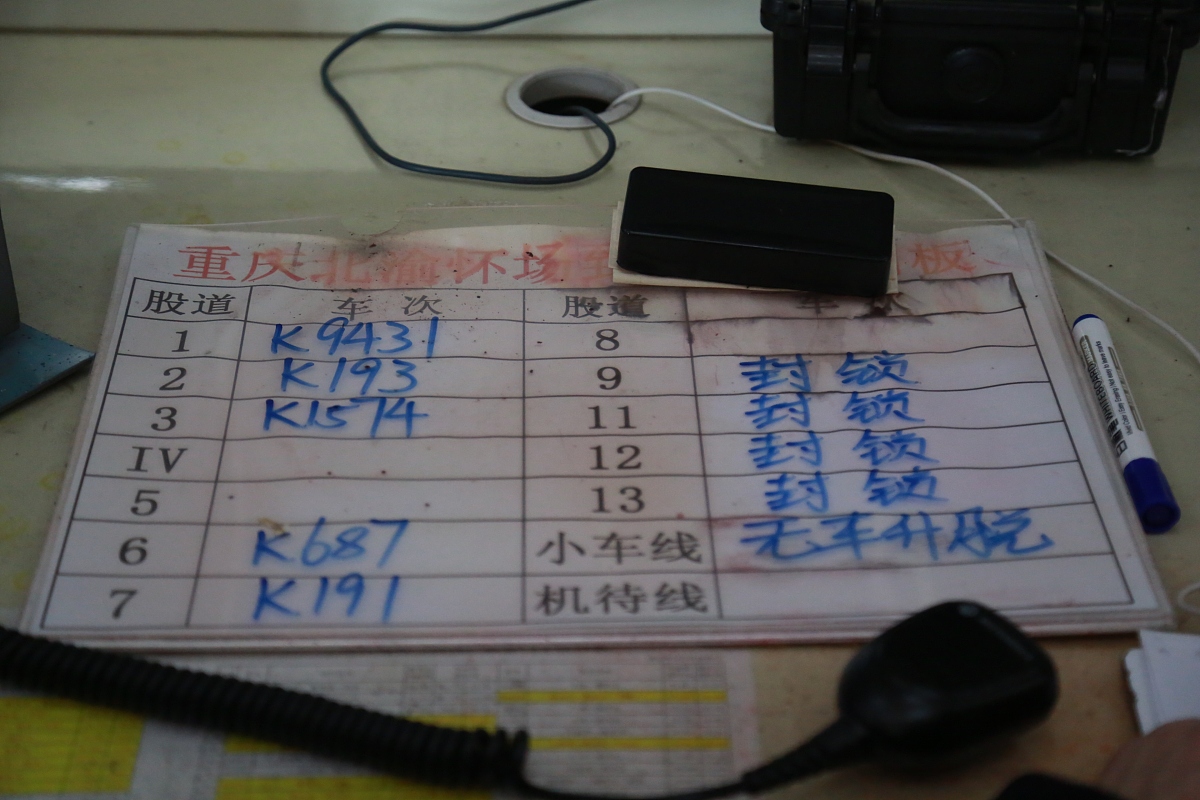 重庆北渝怀场 板
股道 车次 股道 车次
1 K9431 8
2 K193 9 封锁
3 K1574 11 封锁
IV 12 封锁
5 13 封锁
6 K687 小车线 无车升脱
7 K191 机待线